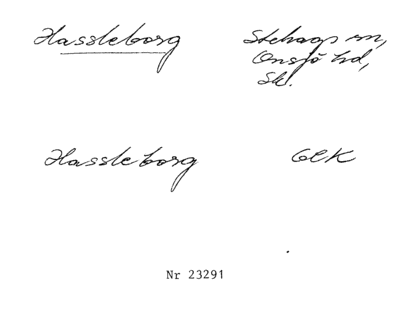 Hassleborg
Stehags sn,
Onsjö hd,
Sk.
Hassleborg
GEK
Nr 23291